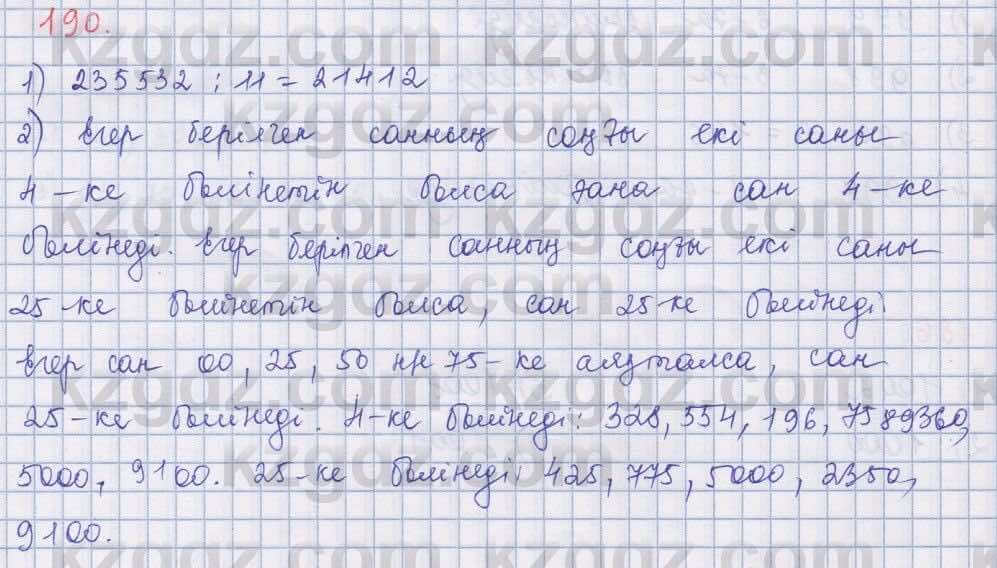 190.
1) 235532 : 11 = 21412
2) Егер берілген санның соңғы екі саны
4-ке бөлінетін болса ғана сан 4-ке
бөлінеді. Егер берілген санның соңғы екі саны
25-ке бөлінетін болса, сан 25-ке бөлінеді
Егер сан 00, 25, 50 нр 75-ке аяқталса, сан
25-ке бөлінеді. 4-ке бөлінеді: 328, 554, 196, 7589360,
5000, 9100. 25-ке бөлінеді: 425, 775, 5000, 2350,
9100.
kzgdz.com kzgdz.com
kzgdz.com
kzgdz.com kzgdz.com
kzgdz.com
kzgdz.com kzgdz.com
kzgdz.com